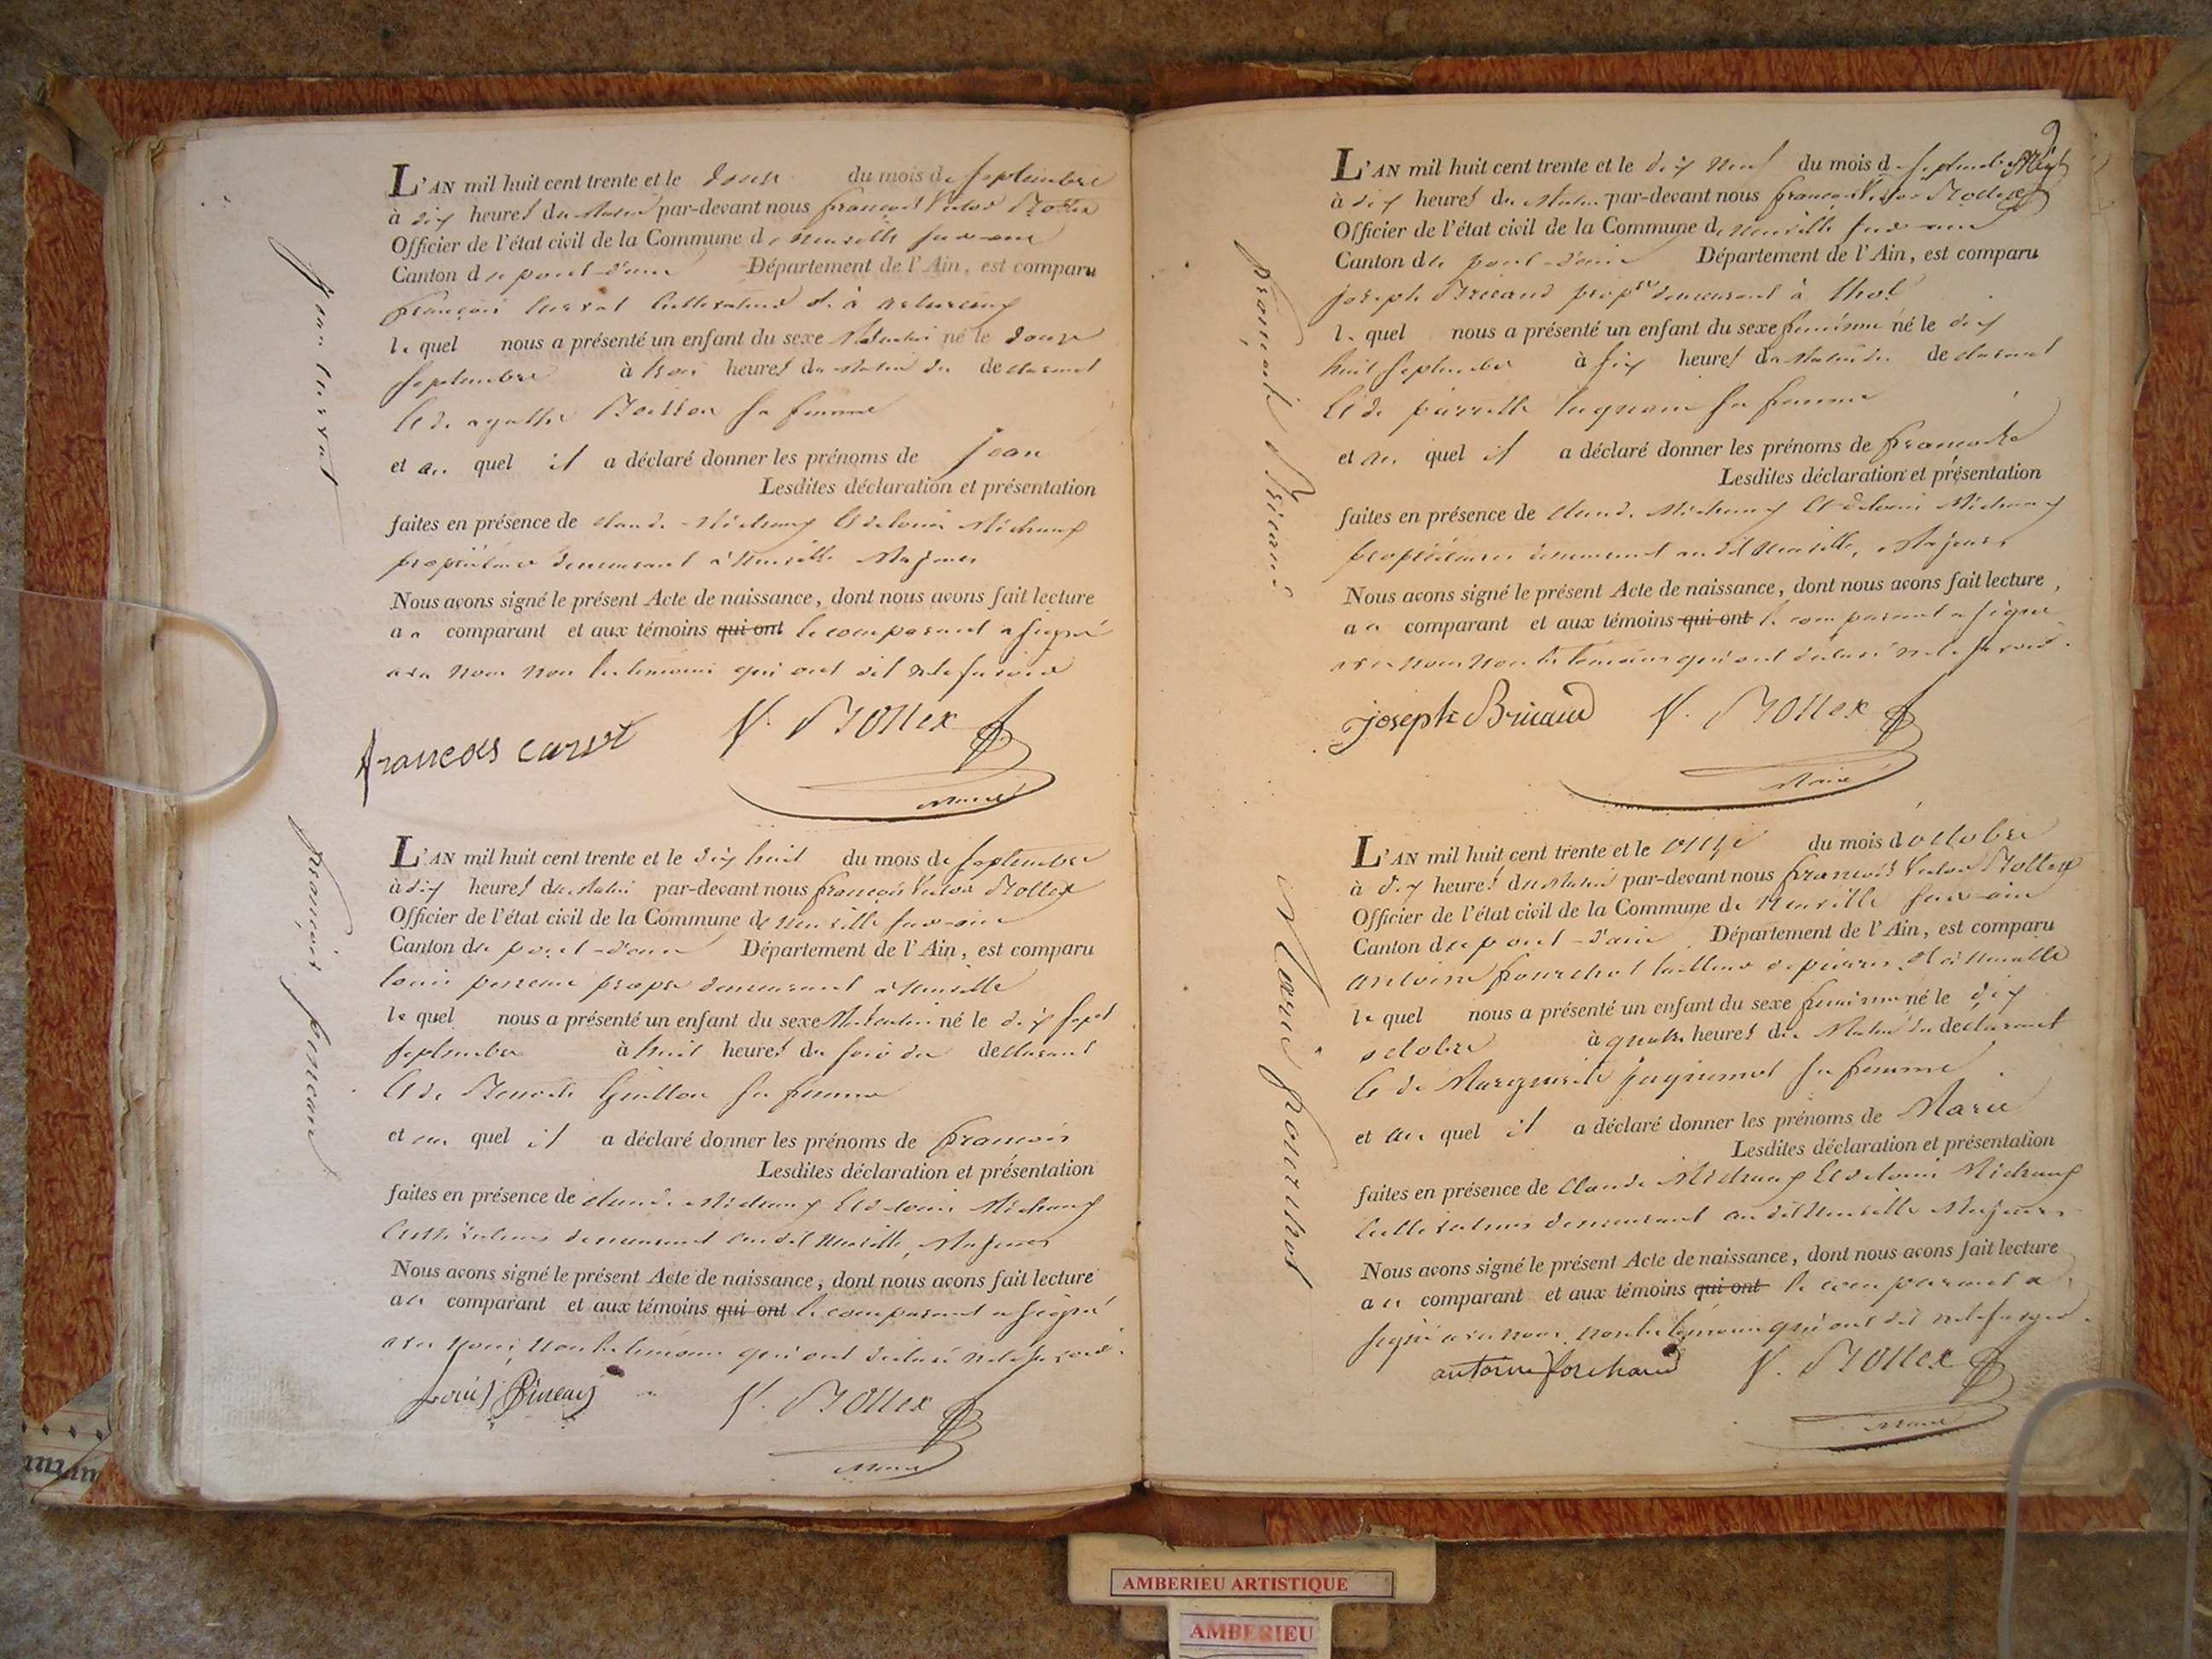 L'AN mil huit cent trente et le douze du mois de septembre
à dix heures du matin par-devant nous françois Victor Bollex
Officier de l'état civil de la Commune de neuville sur ain
Canton du pont-d'ain Département de l'Ain, est comparu
françois cultivateur
le quel nous a présenté un enfant du sexe Masculin né le douze
septembre à trois heures du matin du declarant
Et de agathe sa femme
et au quel il a déclaré donner les prénoms de jean
Lesdites déclaration et présentation
faites en présence de claude Michaux Et de louis Michaux
propriétaires demeurant à neuville Majeurs
Nous avons signé le présent Acte de naissance, dont nous avons fait lecture
au comparant et aux témoins qui ont le comparant a signé
avec nous non les temoins qui ont dit ne le savoir
francois
V. Bollex
Maire
jean
L'AN mil huit cent trente et le dix huit du mois de septembre
à dix heures du matin par-devant nous françois Victor Bollex
Officier de l'état civil de la Commune de neuville sur-ain
Canton du pont-d'ain Département de l'Ain, est comparu
louis demeurant à neuville
le quel nous a présenté un enfant du sexe Masculin né le dix sept
septembre à huit heures du soir du declarant
Et de Benoite Guillon sa femme
et au quel il a déclaré donner les prénoms de françois
Lesdites déclaration et présentation
faites en présence de claude Michaux Et de louis Michaux
cultivateurs demeurant audit neuville, Majeurs
Nous avons signé le présent Acte de naissance, dont nous avons fait lecture
au comparant et aux témoins qui ont le comparant a signé
avec nous, non les temoins qui ont declaré ne le savoir.
Louis
V. Bollex
Maire
françois
L'AN mil huit cent trente et le dix neuf du mois de septembre
à dix heures du matin par-devant nous françois Victor Bollex
Officier de l'état civil de la Commune de neuville sur ain
Canton du pont-d'ain Département de l'Ain, est comparu
joseph Bricaud propre demeurant à thol
le quel nous a présenté un enfant du sexe feminin né le dix
huit septembre à six heures du matin du declarant
Et de pierrette sa femme
et au quel il a déclaré donner les prénoms de francoise
Lesdites déclaration et présentation
faites en présence de claude Michaux Et de louis Michaux
propriétaires demeurant audit neuville, Majeurs
Nous avons signé le présent Acte de naissance, dont nous avons fait lecture
au comparant et aux témoins qui ont le comparant a signé
avec nous non les temoins qui ont declaré ne le savoir.
joseph Bricaud
V. Bollex
Maire
L'AN mil huit cent trente et le onze du mois d'octobre
à dix heures du matin par-devant nous françois Victor Bollex
Officier de l'état civil de la Commune de neuville sur-ain
Canton du pont-d'ain Département de l'Ain, est comparu
antoine fourchot tailleur de pierres
le quel nous a présenté un enfant du sexe feminin né le dix
octobre à quatre heures du Matin du declarant
Et de Marguerite sa femme
et au quel il a déclaré donner les prénoms de Marie
Lesdites déclaration et présentation
faites en présence de Claude Michaux Et de louis Michaux
cultivateurs demeurant audit neuville Majeurs
Nous avons signé le présent Acte de naissance, dont nous avons fait lecture
au comparant et aux témoins qui ont le comparant a
signé avec nous, non les temoins qui ont dit ne le savoir.
antoine
V. Bollex
Maire
Marie fourchot
AMBERIEU ARTISTIQUE
AMBERIEU